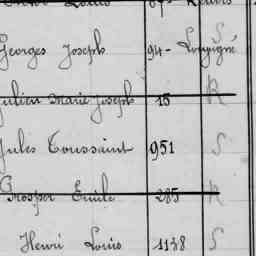 Louis
Georges Joseph 94 - Louvigné S
Julien Marie Joseph 15 R
Jules Toussaint 951 S
Prosper Emile 285 R
Henri Louis 1138 S